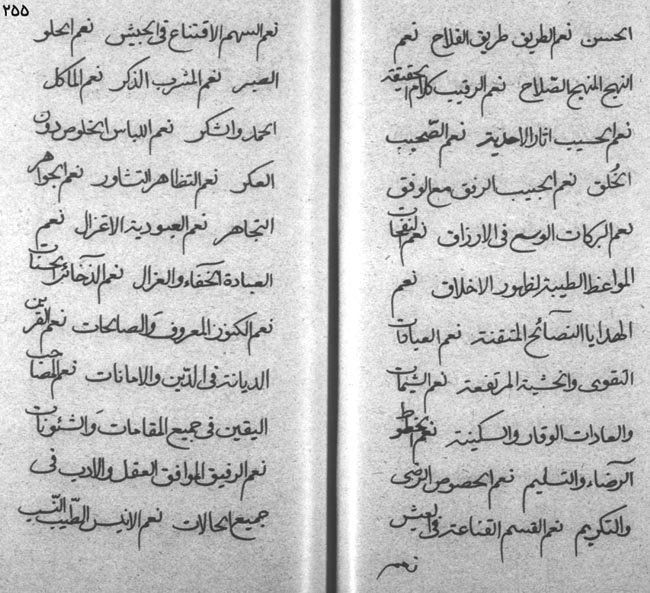 الحسن نعم الطريق طريق الفلاح نعم
النهج المنهج الصّلاح نعم الرقيب كلام الحقيقة
نعم الحسيب اثار الاحدية نعم الصّحيب
الخُلق نعم الحبيب الرفق مع الوفق
نعم البركات الوسع فى الارزاق نعم النفحات
المواعظ الطيبة لظهور الاخلاق نعم
الهدايا النصائح المتقنة نعم العبادات
التقوى والخشية المرتفعة نعم الشيمات
والعادات الوقار والسكينة نعم الخطوط
الرضاء والتسليم نعم الخصوص الرضى
والتكريم نعم القسم القناعة فى العيش
نعم
٢٥٥
نعم السهم الاقتناع فى الجيش نعم الحلو
الصبر نعم المشرب الذكر نعم المأكل
الحمد والشكر نعم اللباس الخلوص دون
العكر نعم التظاهر التشاور نعم الجواهر
التجاهر نعم العبودية الاعتزال نعم
العبادة الخفاء والعزال نعم الذخائر الحسنات
نعم الكنوز المعروف والصالحات نعم القرين
الديانة فى الدّين والامانات نعم المصاحب
اليقين فى جميع المقامات والشئونات
نعم الرفيق الموافق العقل والادب فى
جميع الحالات نعم الانيس الطيب النسيب